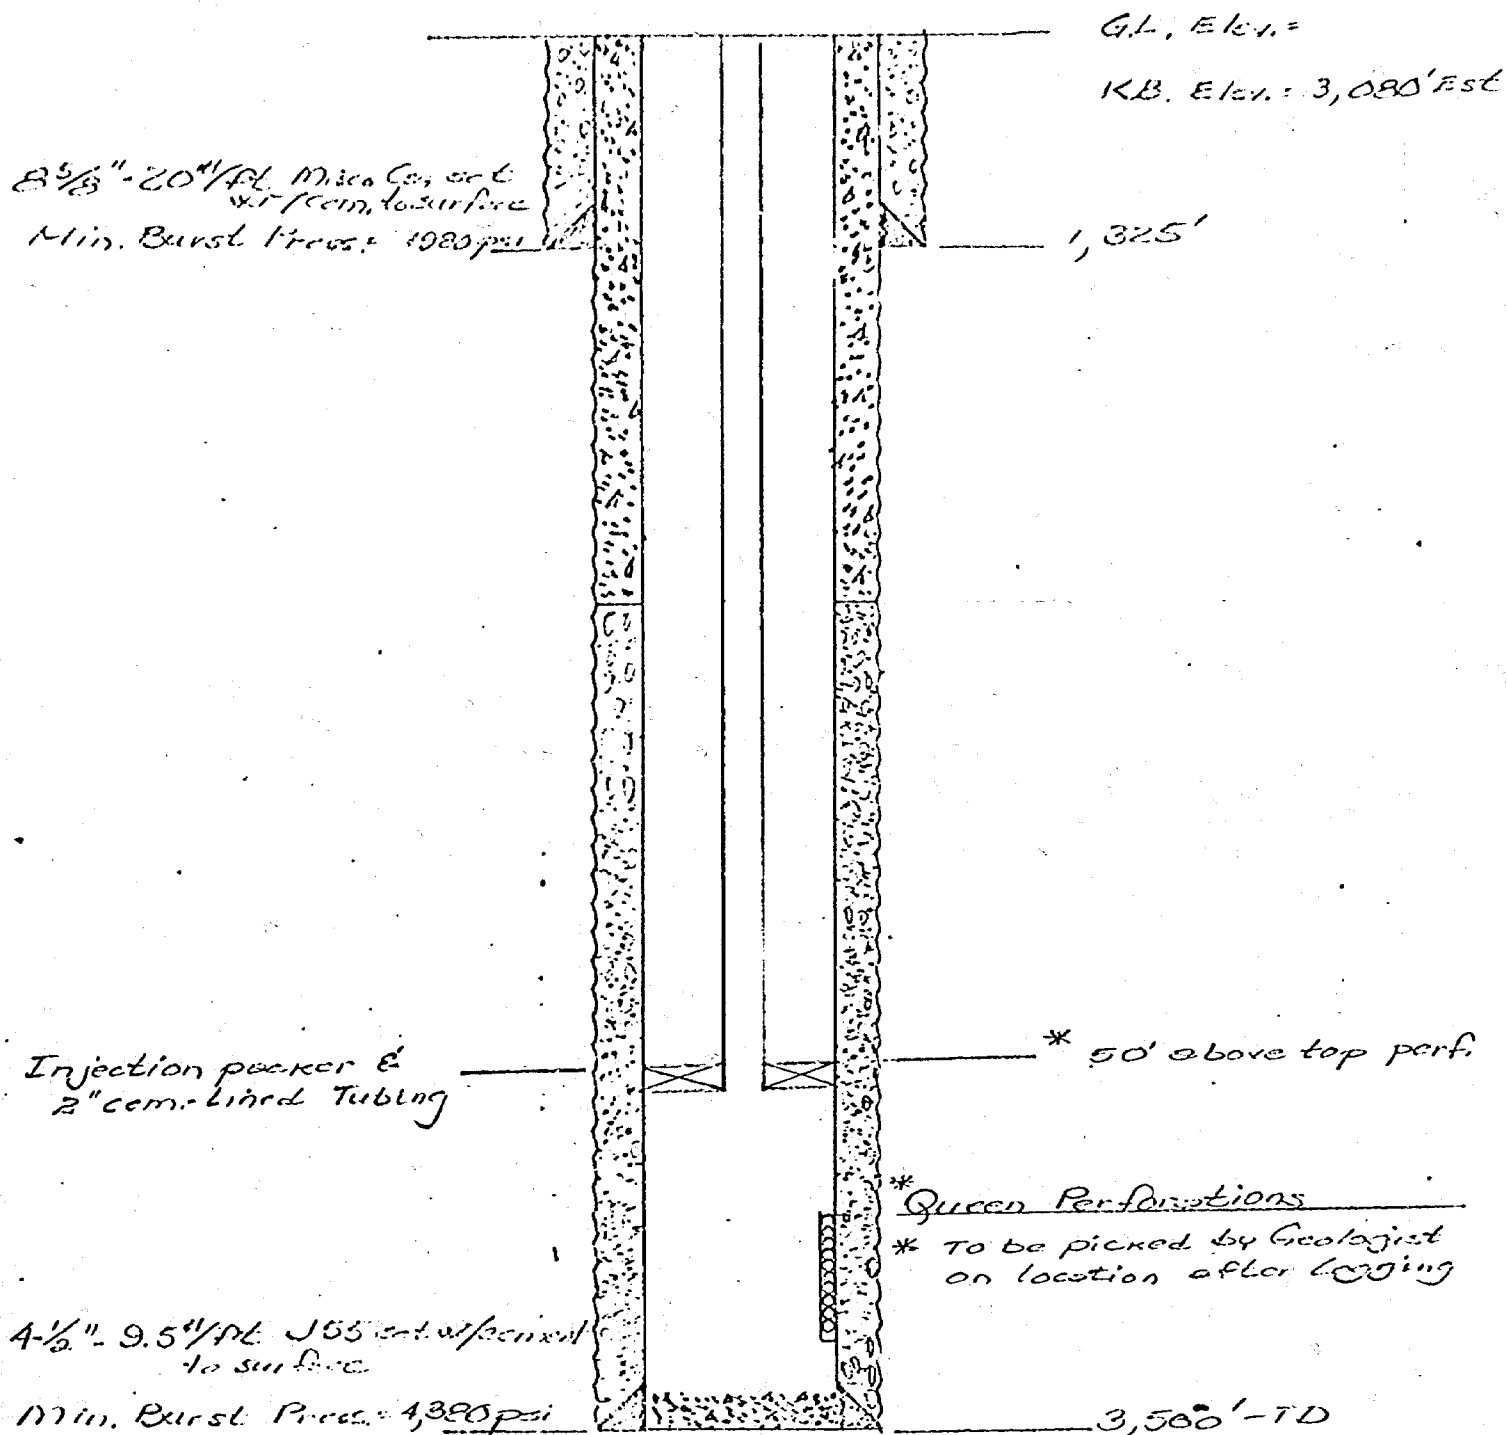 G.L. Elev. =
K.B. Elev. = 3,080' Est
8 5/8" - 20#/ft Misc. Csg set
w/cem. to surface
Min. Burst Press: 1080 psi
1,325'
Injection packer &
2" cem.-lined Tubing
* 50' above top perf.
* Queen Perforations
* To be picked by Geologist
on location after logging
4-1/2" - 9.5#/ft J55 set w/cement
to surface
Min. Burst Press: 4,380 psi
3,500' - TD